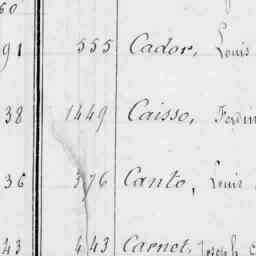 60
91 555 Cador, Louis
38 1449 Caisso, Ferdin
36 376 Canto, Louis
43 443 Carnot, Joseph